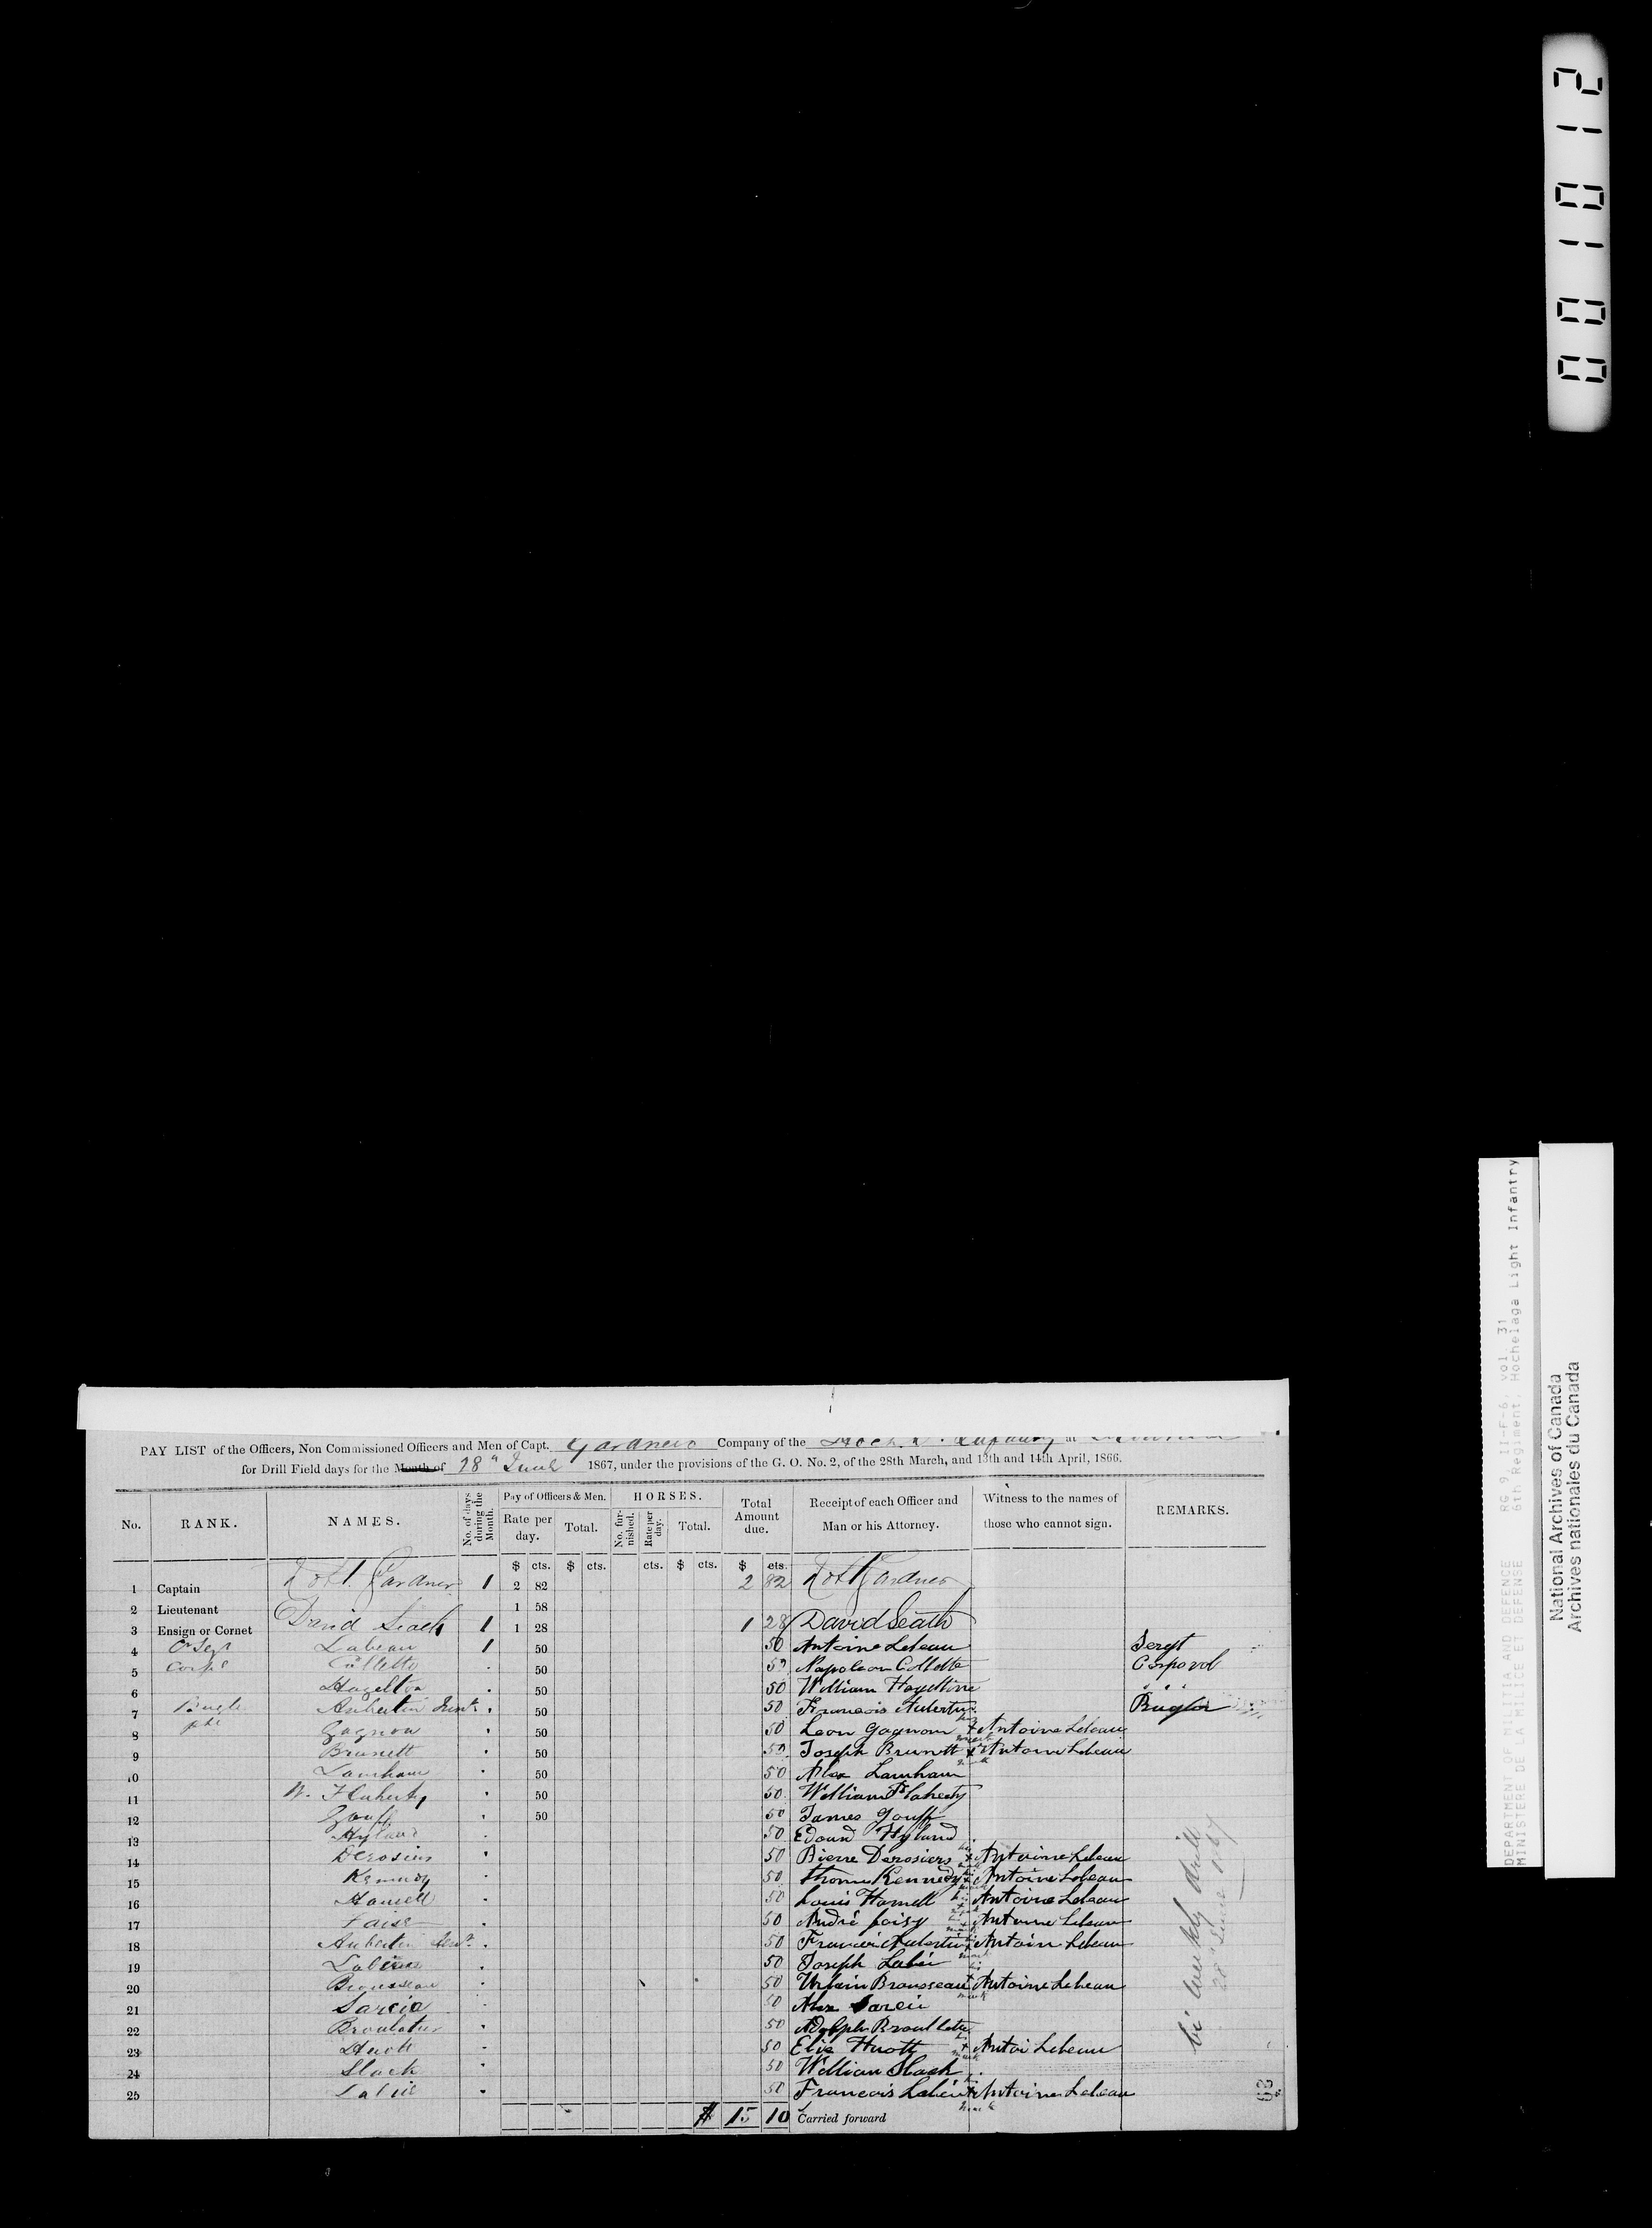 001012
National Archives of Canada
Archives nationales du Canada
DEPARTMENT OF MILITIA AND DEFENCE RG 9, II-F-6, vol. 31
MINISTERE DE LA MILICE ET DEFENSE 6th Regiment, Hochelaga Light Infantry
PAY LIST of the Officers, Non Commissioned Officers and Men of Capt. Gardners Company of the Hoch. L. Infantry at
for Drill Field days for the Month of 28th June 1867, under the provisions of the G. O. No. 2, of the 28th March, and 13th and 14th April, 1866.
No. RANK. NAMES. No. of days during the Month. Pay of Officers & Men. Rate per day. Total. HORSES. No. furnished. Rate per day. Total. Total Amount due. Receipt of each Officer and Man or his Attorney. Witness to the names of those who cannot sign. REMARKS.
$ cts. $ cts. cts. $ cts. $ cts.
1 Captain Robt. Gardner 1 2 82 2 82 Robt Gardner
2 Lieutenant 1 58
3 Ensign or Cornet David Seath 1 1 28 1 28 David Seath
4 Lebeau 1 50 50 Antoine Lebeau Sergt
5 Corpl Collette 50 50 Napoleon Collette Corporol
6 Hazelton 50 50 William Hazeltine
7 Bugle Aubertin Junr. 50 50 Francois Aubertin Bugler
8 pte Gagnon 50 50 Leon Gagnon his + mark Antoine Lebeau
9 Brunett 50 50 Joseph Brunett + mark Antoine Lebeau
10 Lanham 50 50 Alex Lanham
11 W. Flaherty 50 50 William Flaherty
12 Gouff 50 50 James Gouff
13 Hyland 50 Edouard Hyland
14 Derosiers 50 Pierre Derosiers his + mark Antoine Lebeau
15 Kennedy 50 Thomas Kennedy his + mark Antoine Lebeau
16 Hamell 50 Louis Hamell his + mark Antoine Lebeau
17 50 André foisy his + mark Antoine Lebeau
18 Aubertin Senr. 50 Francois Aubertin + mark Antoine Lebeau
19 50 Joseph
20 Brousseau 50 Urbain Brousseau his + mark Antoine Lebeau
21 Sarcie 50 Alex Sarcie
22 50 Adolph
23 Huott 50 Elie Huott his + mark Antoi Lebeau
24 Slack 50 William Slack
25 50 Francois his + mark Antoine Lebeau
$ 15 10 Carried forward
bi weekly drill
28 June 1867
63